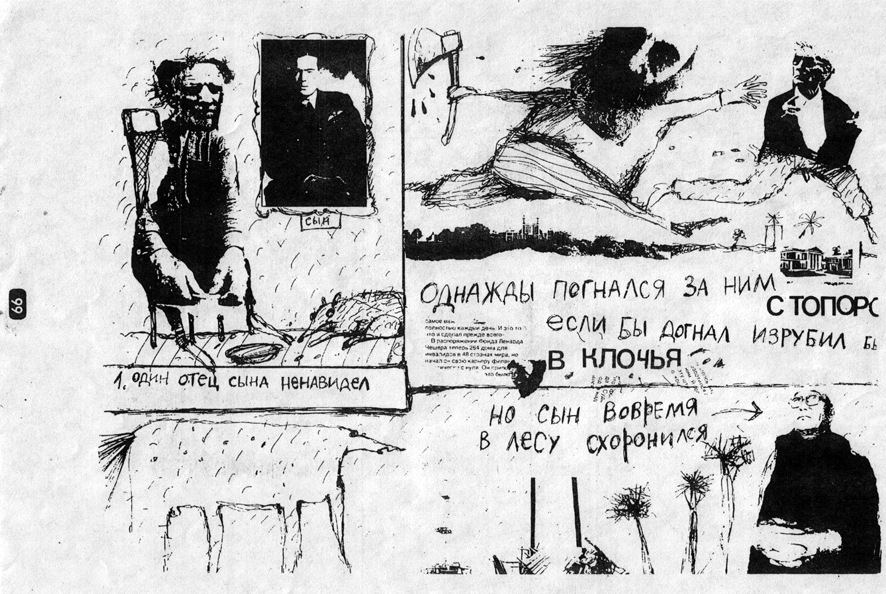 99
СЫН
1. ОДИН ОТЕЦ СЫНА НЕНАВИДЕЛ
ОДНАЖДЫ ПОГНАЛСЯ ЗА НИМ
С ТОПОРО
ЕСЛИ БЫ ДОГНАЛ ИЗРУБИЛ БЫ
В КЛОЧЬЯ
полностью каждый день. И это то
что я сделал прежде всего.
В распоряжении Фонда Леонарда
Чешера теперь 264 дома для
инвалидов в 48 странах мира, но
НО СЫН ВОВРЕМЯ
В ЛЕСУ СХОРОНИЛСЯ